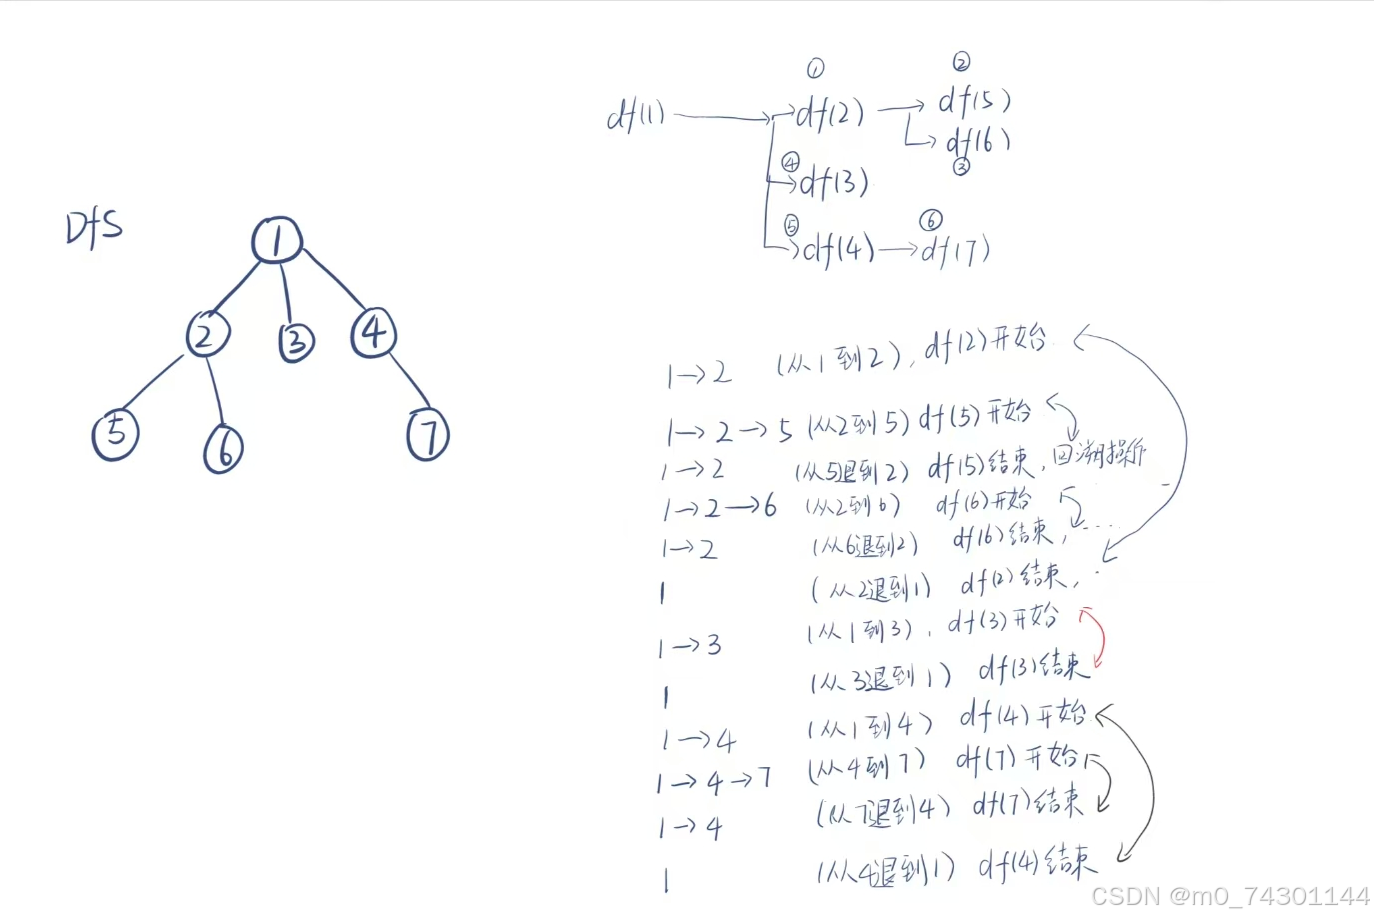 Dfs
1
2 3 4
5 6 7
① ②
df(1) → df(2) → df(5)
→ df(6)
④ ③
→ df(3)
⑤ ⑥
→ df(4) → df(7)
1→2 (从1到2), df(2)开始
1→2→5 (从2到5) df(5)开始
1→2 (从5退到2) df(5)结束, 回溯操作
1→2→6 (从2到6) df(6)开始
1→2 (从6退到2) df(6)结束, ....
1 (从2退到1) df(2)结束,
1→3 (从1到3), df(3)开始
1 (从3退到1) df(3)结束
1→4 (从1到4) df(4)开始
1→4→7 (从4到7) df(7)开始
1→4 (从7退到4) df(7)结束
1 (从4退到1) df(4)结束
CSDN @m0_74301144